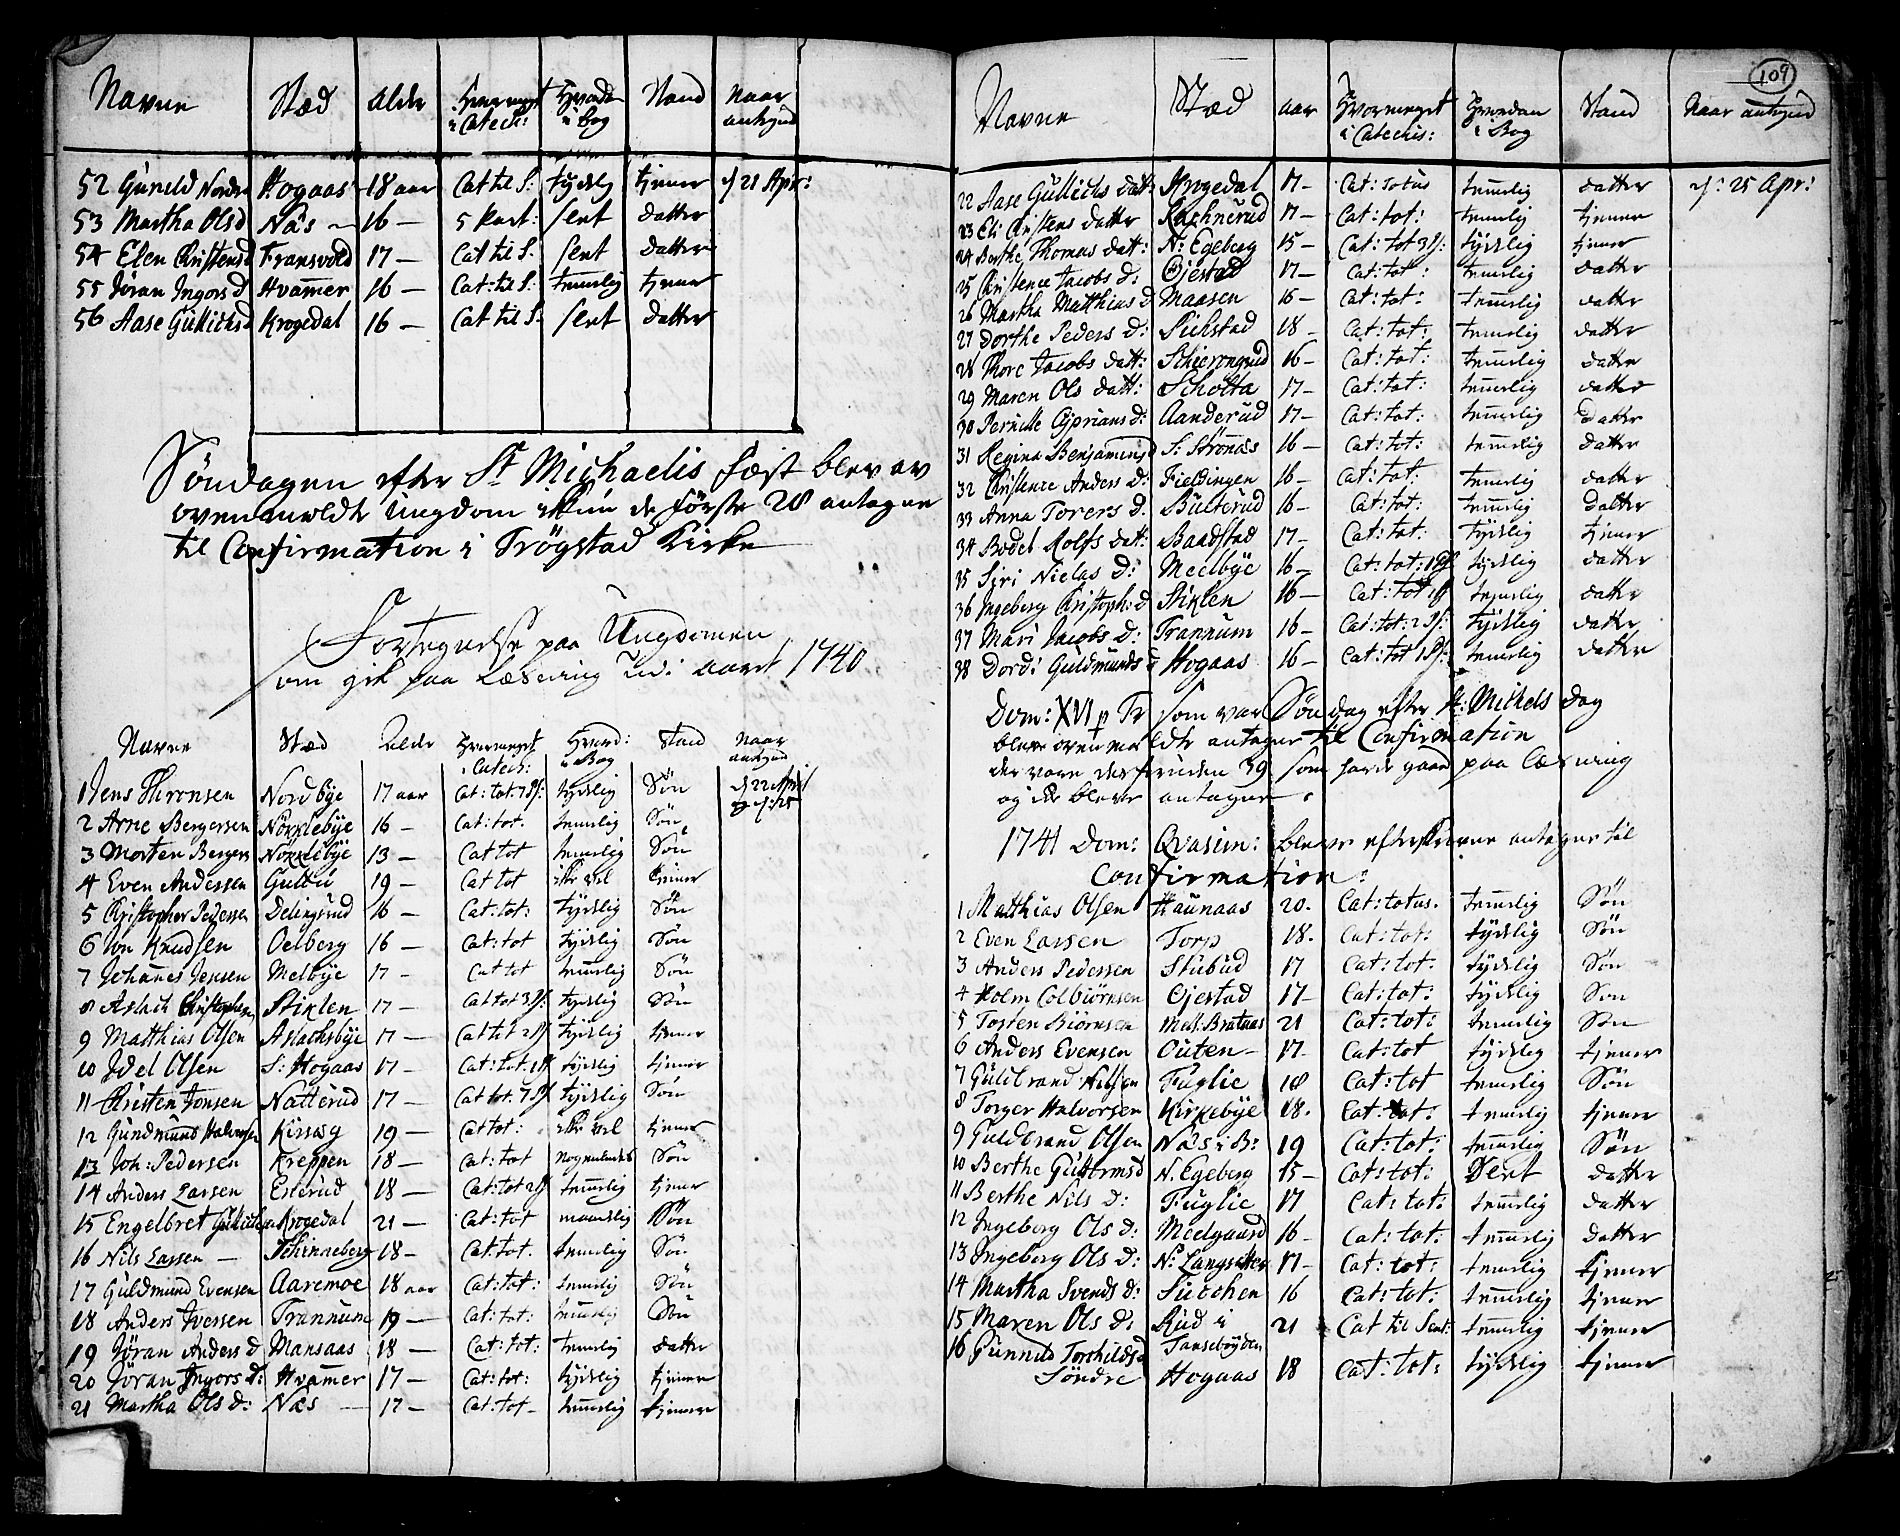 Navne Stæd Alder Hvormeget i Catech: Hvordan i bog Stand Naar antegnd
52 Guneld Nordre Hogaas 18 aar Cat til S: tydelig tjener d 21 Apr:
53 Martha Olsd Nås 16 — 5 Part: slet datter
54 Elen Christensd Fransvold 17 — Cat til S: slet datter
55 Jøran Ingors d Hvammer 16 — Cat: til S: temelig tjener
56 Aase Gullichsd Krogedal 16 — Cat til S: slet datter
Søndagen efter St Michaelis fæst blev av
ovenmeldte Ungdom ikkun de første 28 antagne
til Confirmation i Trøgstad Kirke
Fortegnelse paa Ungdomen
som gik paa Læsning udi aaret 1740
Navne Stæd Alder Hvormeget i Catech: Hvord: i Bog Stand Naar antegnd
1 Jens Thronsen Nordbye 17 aar Cat: tot: 7 S: tydelig Søn d 22 Apr
2 Arne Bergersen Nøkklebye 16 — Cat: tot. temelig Søn
3 Morten Bergers Nøkklebye 13 — Cat tot temelig Søn
4 Even Andersen Gulbu 19 — Cat tot ikke vel tjener
5 Christopher Pedersen Delingsrud 16 — Cat: tot: tydelig Søn
6 Jon Knudsen Oelberg 16 — Cat: tot tydelig Søn
7 Johanes Jensen Melbye 17 — Cat tot temelig Søn
8 Aslach Christophersen Stiklen 17 — Cat tot 3 S: tydelig Søn
9 Matthias Olsen Aslachsbye 17 — Cat tot 2 S tydelig tjener
10 Joel Olsen S: Hogaas 17 — Cat: tot. 1 S tydelig tjener
11 Christen Jonsen Natterud 17 — Cat tot. 7 S tydelig Søn
12 Gundmund Halvorsen Kirseg 19 — Cat tot: ikke vel tjener
13 Joh: Pedersen Kreppen 18 — Cat: tot nogenledes Søn
14 Anders Larsen Eserud 18 — Cat: tot 2 S temelig tjener
15 Engelbret Gullichsen Krogedal 21 — Cat: tot maadelig Søn
16 Nils Larsen — Schinneberg 18 — Cat: tot. temelig Søn
17 Guldmund Evensen Aaremoe 18 aar Cat: tot: temelig Søn
18 Anders Iversen Trannum 19 — Cat: tot: temmelig Søn
19 Jøran Anders d Mansaas 18 — Cat: tot: temelig datter
20 Jøran Ingors d: Hvamer 17 — Cat: tot: tydelig tjener
21 Martha Ols d: Næs — 17 — Cat: tot — temelig tjener
109
Navne Stæd aar Hvormeget i Catechis: Hvordan i Bog Stand Naar antegnd
22 Aase Gullichs datt: Krogedal 17 — Cat: totus temelig datter d: 25 Apr:
23 Eli Christens datter Rachnerud 17 — Cat: tot: temelig tjener
24 Berthe Thomas datt: N: Egeberg 15 — Cat: tot 3 S: tydelig tjener
25 Christence Jacobs d: Gjestad 17 — Cat: tot: temelig datter
26 Martha Matthias d Maasen 16 — Cat: tot: temelig datter
27 Dorthe Peders d: Pichstad 18 — Cat: tot: temelig datter
28 Thore Jacobs datt: Schierengrud 16 — Cat: tot: temelig datter
29 Maren Ols datt: Scholta 17 — Cat: tot: temelig datter
30 Pernille Ciprians d: Aanderud 17 — Cat: tot: temelig datter
31 Regina Benjamins d S: Strønæs 16 — Cat: tot: temelig datter
32 Christence Anders d: Fieldingen 16 — Cat: tot: temelig datter
33 Anna Torers d. Bulterud 16 — Cat: tot: temelig datter
34 Bodel Rolfs datt: Baadstad 17 — Cat: tot: tydelig tjener
35 Siri Nielas d: Meelbye 16 — Cat: tot: 1 S: tydelig datter
36 Ingeberg Christoph: d Stiklen 16 — Cat: tot 1 S temelig datter
37 Mari Jacobs d: Trannum 16 — Cat: tot: 2 S: tydelig datter
38 Dordi Guldmunds d Hogaas 16 — Cat: tot 1 S: temelig datter
Dom: XVI p Tr som var Søndag efter St: Michels dag
bleve ovenmeldte antagne til Confirmation
der vare desforuden 39 som hafde gaaet paa Læsning
og ikke bleve antagne.
1741 Dom: Qvasim: bleve efterskrevne antagne til
Confirmation:
1 Matthias Olsen Haunaas 20. Cat: totus. temelig Søn
2 Even Larsen Torp 18. Cat: tot: tydelig Søn
3 Anders Pedersen Stubud 17 Cat: tot: tydelig Søn
4 Holm Colbiørnsen Gjestad 17 — Cat: tot: tydelig Søn
5 Torsten Biørnsen Mell: Brataas 21 Cat: tot: temelig Søn
6 Anders Evensen Outen — 17. Cat: tot tydelig tjener
7 Guldbrand Nilsen Fuglie 18 Cat: tot temelig Søn
8 Torger Halvorsen Kirkebye 18. Cat: tot: temelig tjener
9 Guldbrand Olsen Nås i B: 19 Cat: tot: temelig Søn
10 Berthe Guttormsd N. Egeberg 15 — Cat: tot: Slet datter
11 Berthe Nils d: Fuglie 17 Cat: tot: temelig datter
12 Ingeborg Ols d: Meelgaard 16 — Cat: tot: temelig datter
13 Ingeborg Ols d: N: Langsetter 17 — Cat: tot: temelig tjener
14 Martha Svends d: Suschen 16 Cat: tot: temelig tjener
15 Maren Ols d: Rud i 21 Cat til Sent: temelig tjener
16 Gunnild Torchildsd Tansebøyden
Søndre Hogaas 18 Cat: tot: tydelig tjener